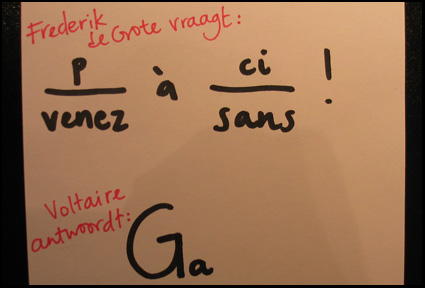 Frederik
de Grote vraagt:
p à ci !
venez sans
Voltaire
antwoordt:
Ga